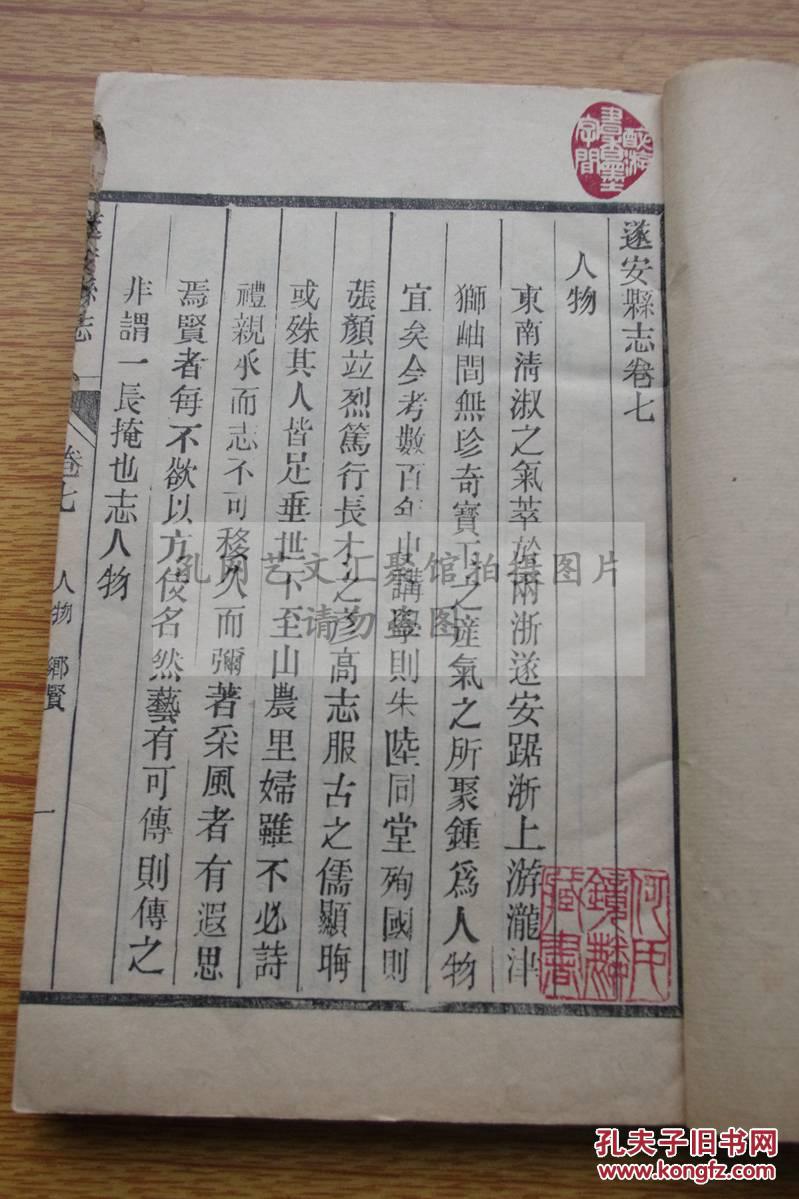 遂安縣志卷七
人物
東南淸淑之氣萃於兩浙遂安踞浙上游瀧津
獅岫間無珍奇寶玉之産氣之所聚鍾爲人物
宜矣今考數百年山講學則朱陸同堂殉國則
張顏竝烈篤行長才之彥高志服古之儒顯晦
或殊其人皆足垂世下至山農里婦雖不必詩
禮親承而志不可移久而彌著采風者有遐思
焉賢者每不欲以方伎名然藝有可傳則傳之
非謂一長掩也志人物
遂安縣志
卷七
人物 鄉賢
一
醉游書香墨字間
何氏鏡㴝藏書
孔网艺文汇聚馆拍摄图片
请勿盗图
孔夫子旧书网
www.kongfz.com